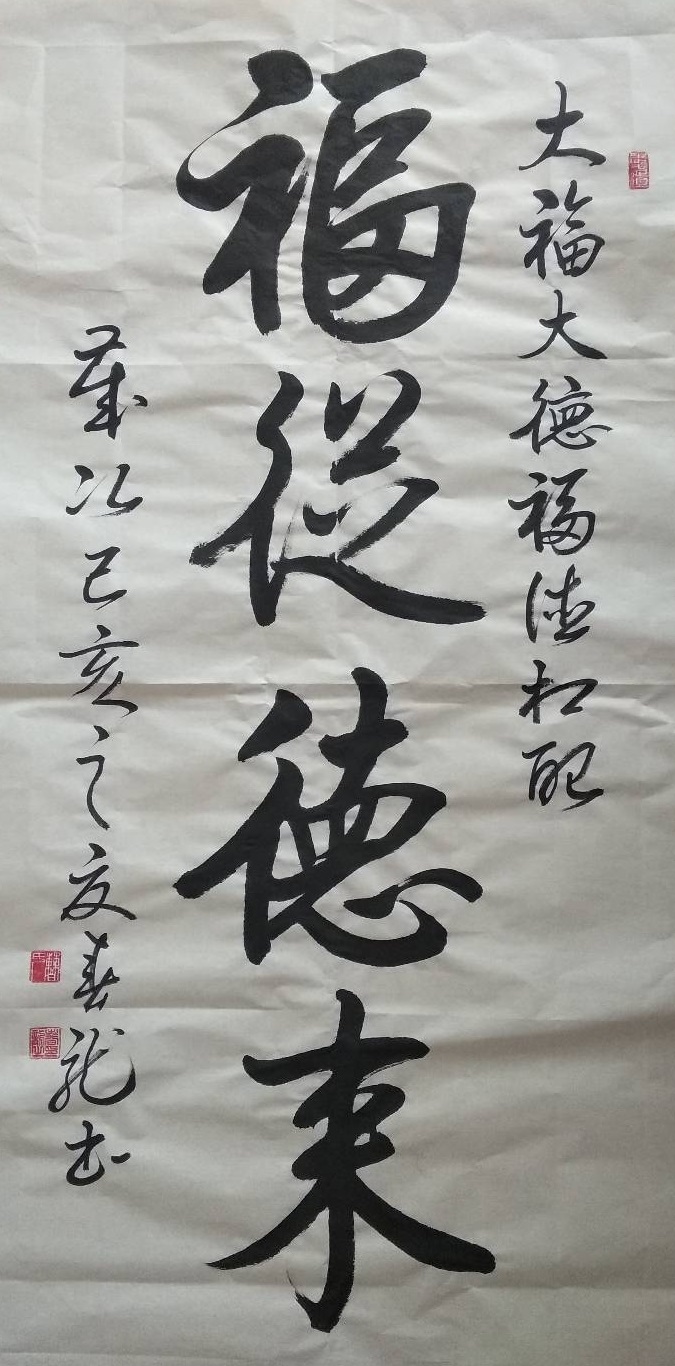 大福大德福德相配
福從德来
歲次己亥之夏春龙书